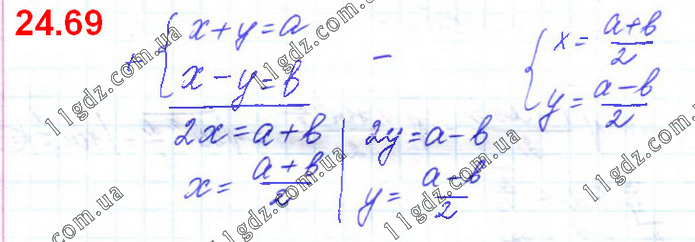 24.69
+ { x + y = a
x − y = b
2x = a + b | 2y = a − b
x = (a + b)/2 | y = (a − b)/2
−
{ x = (a + b)/2
y = (a − b)/2
11gdz.com.ua
11gdz.com.ua
11gdz.com.ua
11gdz.com.ua
11gdz.com.ua
11gdz.com.ua
11gdz.com.ua
11gdz.com.ua